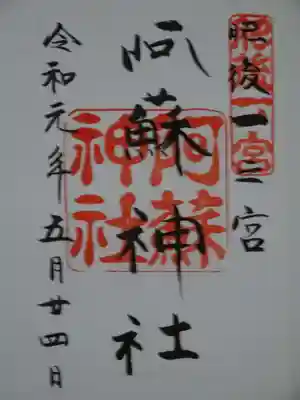 肥後一之宮
肥後一宮
阿蘇神社
阿蘇
神社
令和元年五月廿四日